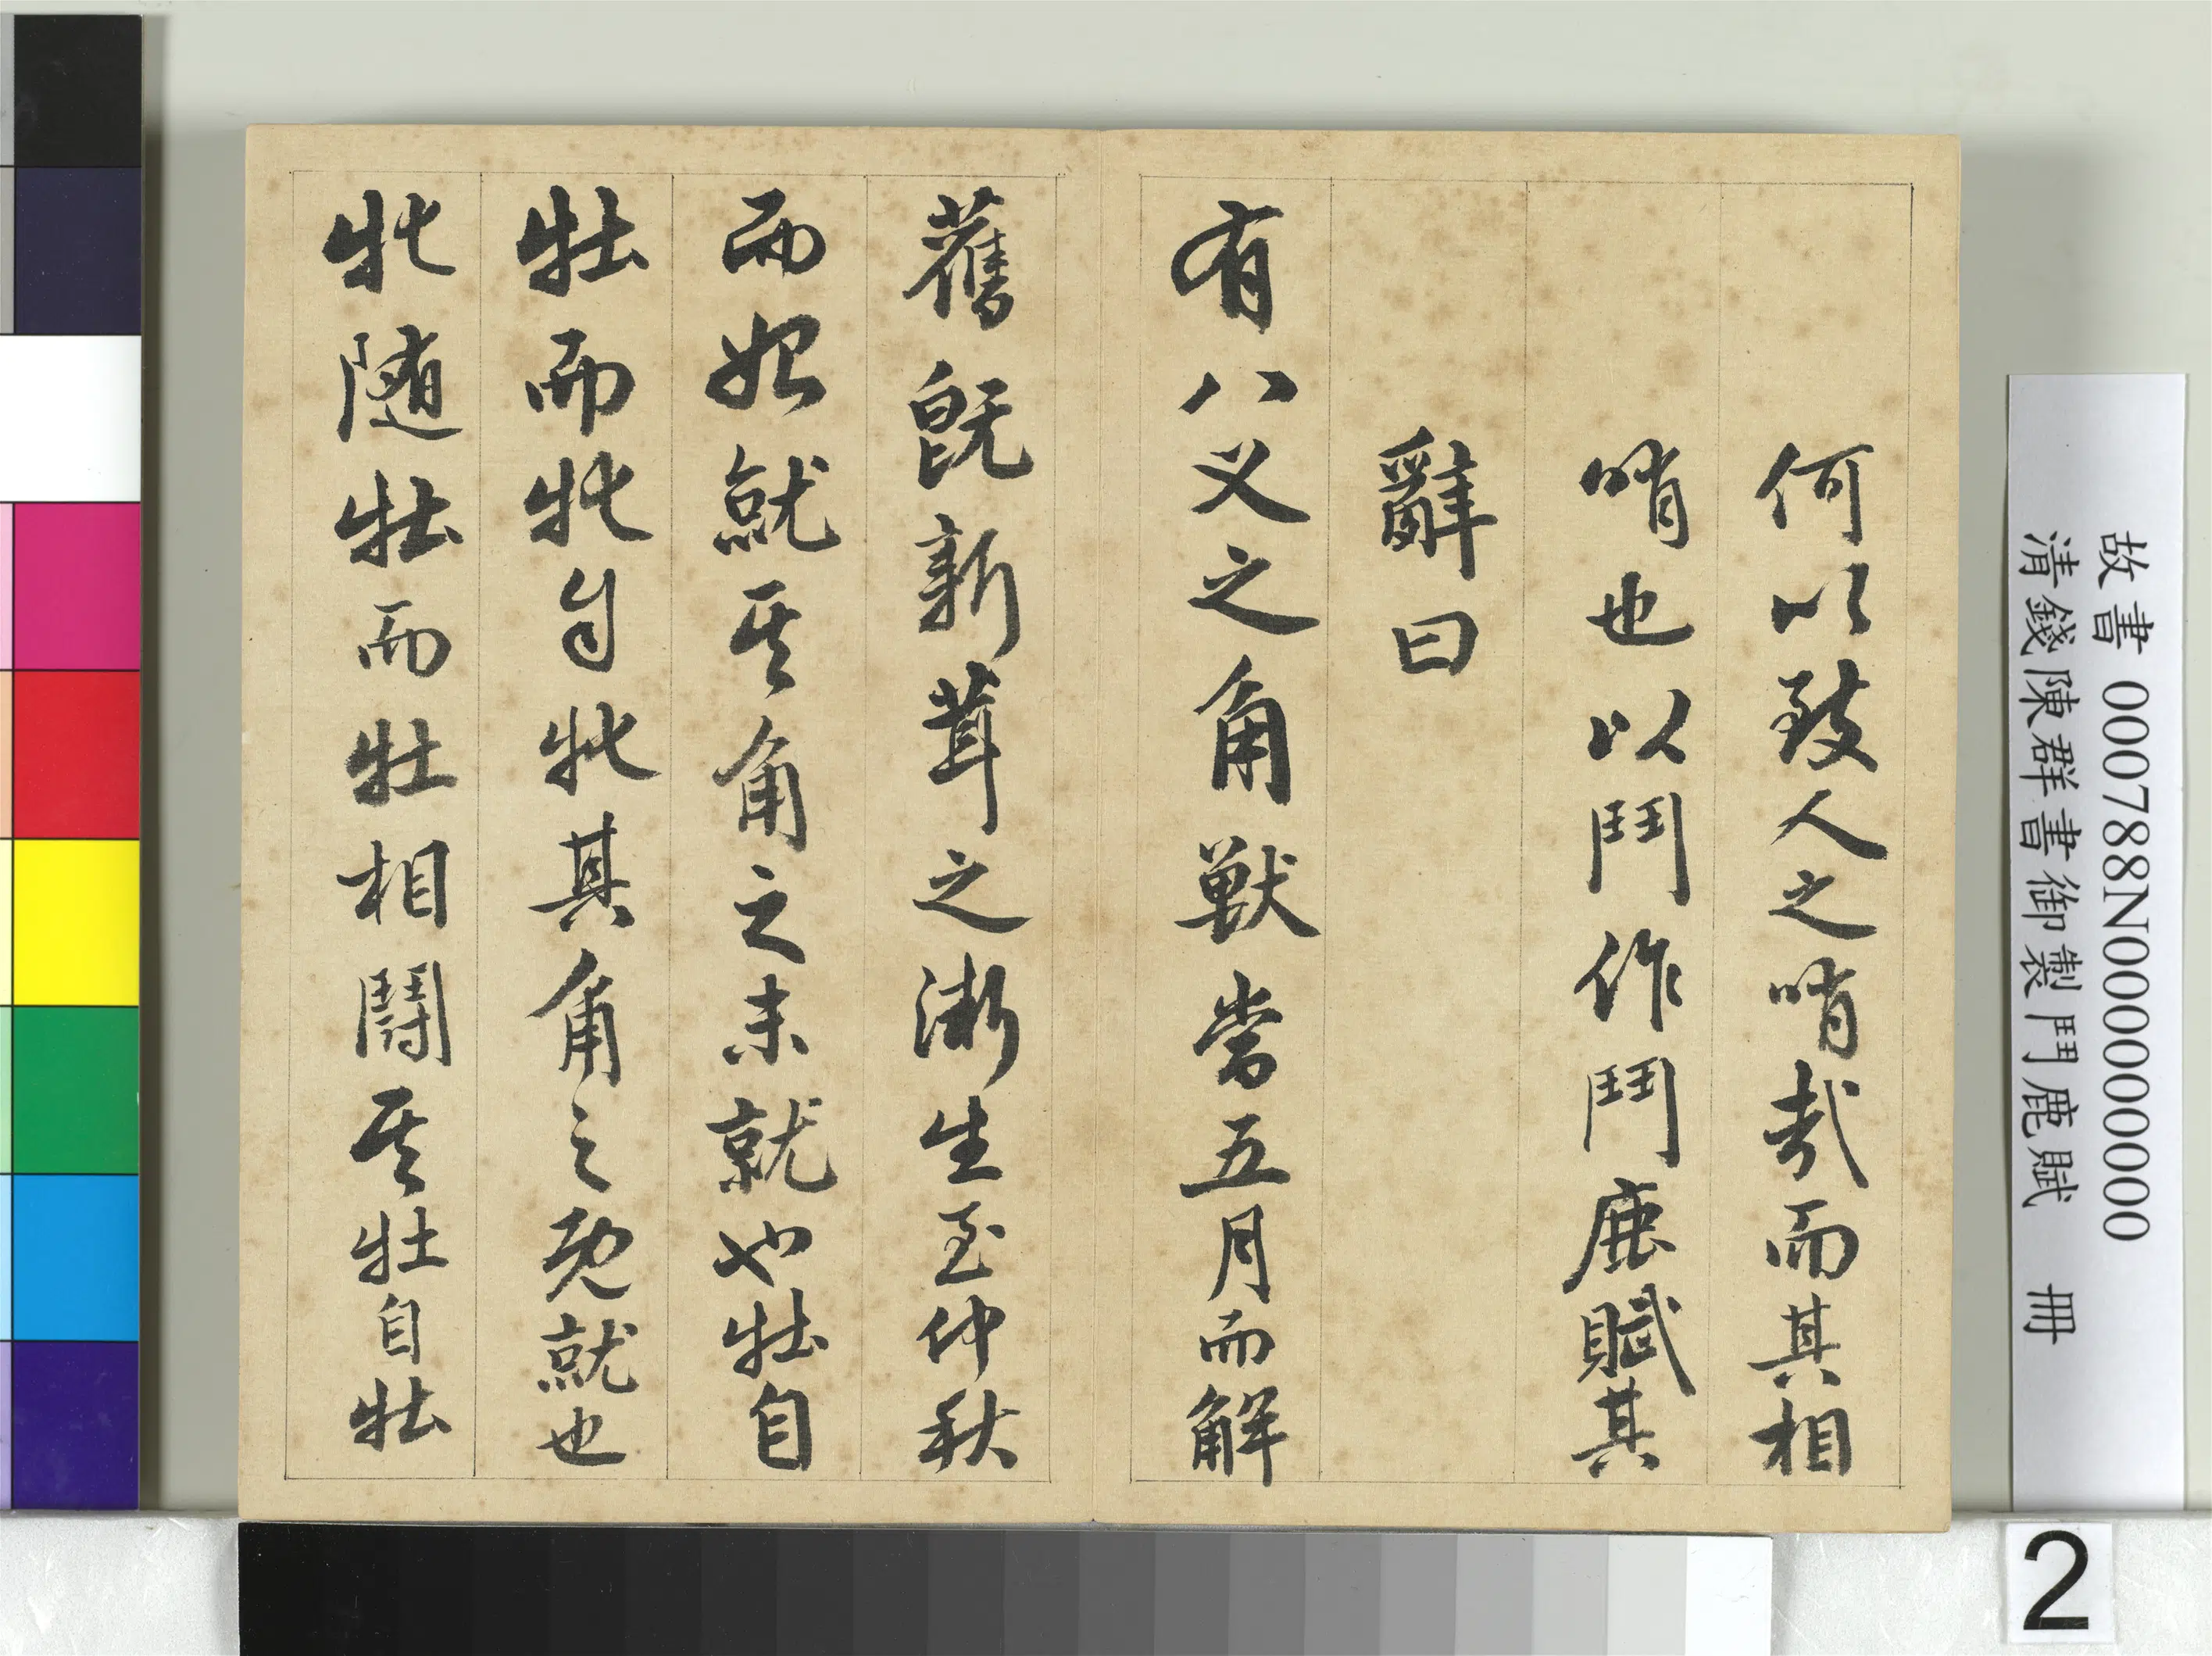 何以致人之哨哉而其相
哨也以鬥作鬥鹿賦其
辭曰
有八义之角獸當五月而解
舊既新茸之漸生至仲秋
而始就其角之未就也牡自
牡而牝自牝其角之既就也
牝隨牡而牡相鬪其牡自牡
故書 000788N000000000
清錢陳群書御製鬥鹿賦 冊
2